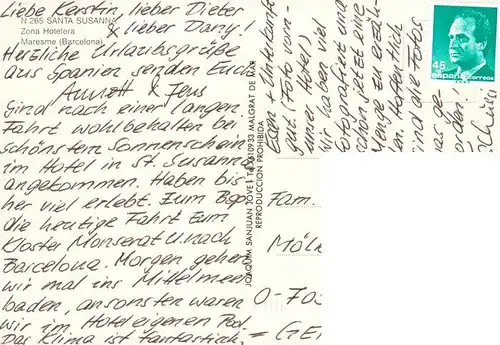 N 265 SANTA SUSANNA
Zona Hotelera
Maresme (Barcelona)
Liebe Kerstin, lieber Dieter
& lieber Dany!
Herzliche Urlaubsgrüße
aus Spanien senden Euch
Annett & Jens
Sind nach einer langen
Fahrt wohlbehalten bei
schönstem Sonnenschein
im Hotel in St. Susanna
angekommen. Haben bis-
her viel erlebt. Zum Bsp.
die heutige Fahrt zum
Kloster Monserat u. nach
Barcelona. Morgen gehen
wir mal ins Mittelmeer
baden, ansonsten waren
wir im Hoteleigenen Pool.
Das Klima ist fantastisch,
Essen + Unterkunft
gut. (Foto vorn:
unser Hotel)
Wir haben viel
fotografiert und
schon jetzt eine
Menge zu erzäh-
len. Hoffentlich
sind die Fotos
was ge-
orden.
Tschüssi
JOAQUIM SANJUAN JOVE MALGRAT DE MAR
REPRODUCCION PROHIBIDA
45
españa correos
Fam.
Möl
O-703
= GE